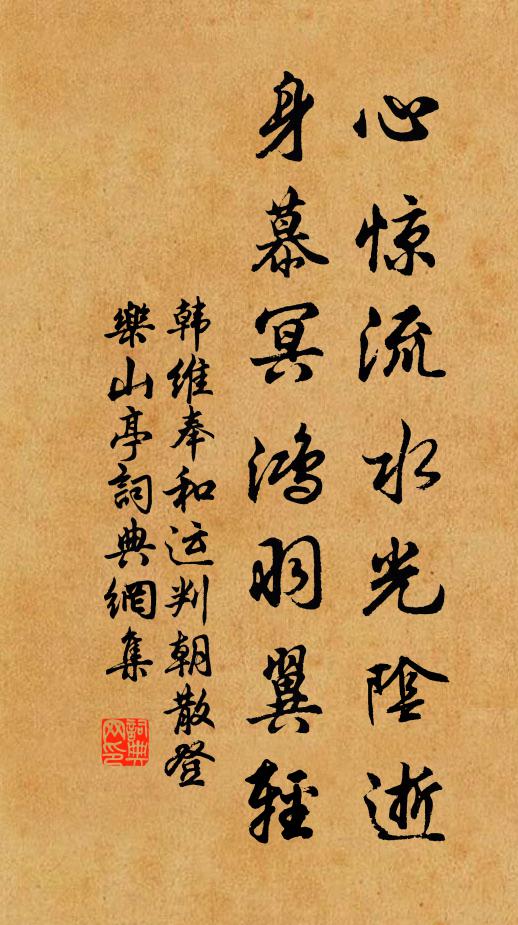 心惊流水光陰逝
身慕冥鸿羽翼輕
韩维奉和运判朝散登
樂山亭詞典網集
詞典网印